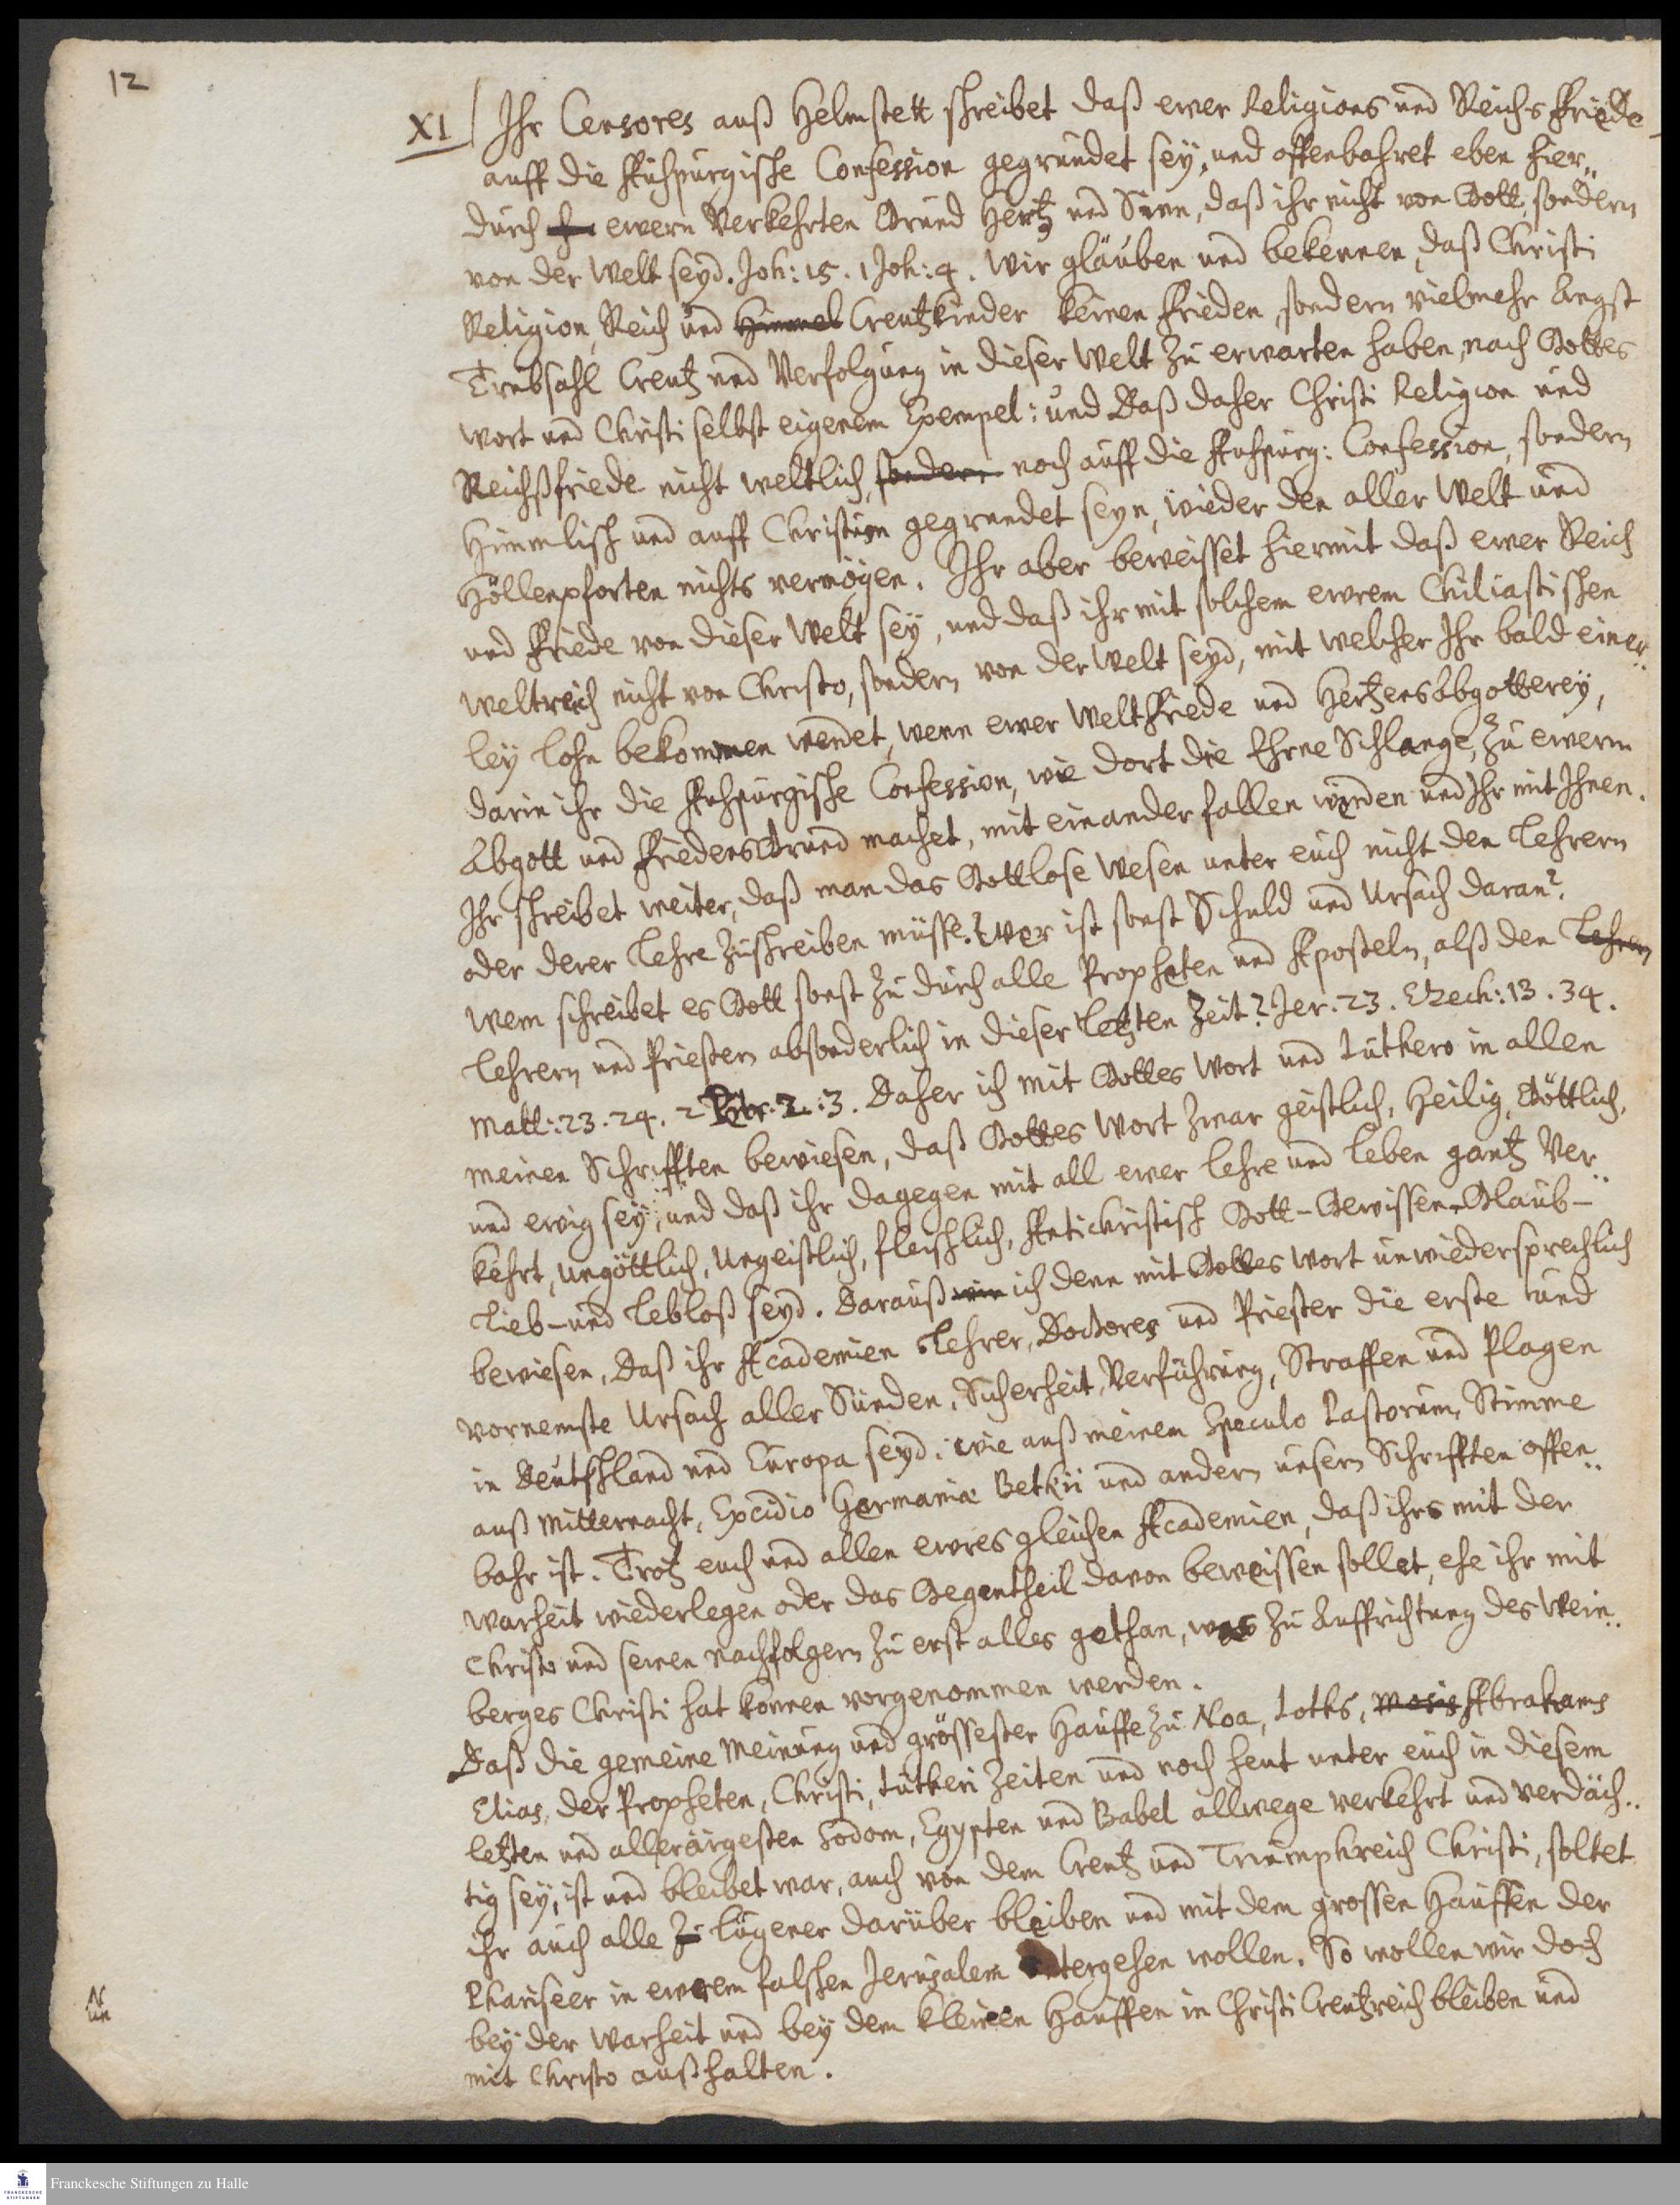 12
XI Ihr Censores auß Helmstett schreibet daß ewer Religions und Reichs Friede
auff die Auhspurgische Confession gegründet sey, und offenbahret eben hier..
durch ewern Verkehrten Grund Hertz und Sinn, daß ihr nicht von Gott, sondern
von der Welt seyd. Joh: 15. 1 Joh: 4. Wir gläuben und bekennen, daß Christi
Religion, Reich und Himmel Creutzkinder keinen Frieden, sondern vielmehr Angst
Trübsahl Creutz und Verfolgung in dieser Welt zu erwarten haben, nach Gottes
wort und Christi selbst eigenem Exempel: und Daß daher Christi Religion und
Reichßfriede nicht weltlich, sondern noch auff die Auhspurg: Confession, sondern
Himmlisch und auff Christum gegrundet seyn, wieder den aller Welt und
Höllenpforten nichts vermögen. Ihr aber beweisset hiermit daß ewer Reich
und Friede von dieser Welt sey, und daß ihr mit solchem ewrem Chiliastischen
weltreich nicht von Christo, sondern von der Welt seyd, mit welcher Ihr bald einer..
ley lohn bekommen werdet, wenn ewer Weltfriede und Hertzensabgotterey,
darin ihr die Auhspurgische Confession, wie dort die Ehrne Schlange, zu ewerm
Abgott und FriedensGrund machet, mit einander fallen würden und Ihr mit Ihnen.
Ihr schreibet weiter, daß man das Gottlose Wesen unter euch nicht den Lehrern
oder derer Lehre zuschreiben müsse. Wer ist sonst Schuld und Ursach daran?
Wem schreibet es Gott sonst zu durch alle Propheten und Aposteln, alß den Lehrern
Lehrern und Priestern absonderlich in dieser Letzten Zeit? Jer: 23. Ezech: 13. 34.
Matt: 23. 24. 2 Petr: 2. 3. Daher ich mit Gottes Wort und Luthero in allen
meinen Schrifften bewiesen, daß Gottes Wort zwar geistlich, Heilig, Göttlich,
und ewig sey, und daß ihr dagegen mit all ewer Lehre und Leben gantz Ver..
kehrt, ungöttlich, Ungeistlich, fleischlich, Antichristisch Gott-Gewissen-Glaub-
Lieb- und Lebloß seyd. Darauß wir ich denn mit Gottes Wort unwiedersprechlich
bewiesen, Daß ihr Academien Lehrer, Doctores und Priester die erste und
vornemste Ursach aller Sünden, Sicherheit, Verführung, Straffen und Plagen
in Deutschland und Europa seyd: wie auß meinem Speculo Pastorum, Stimme
auß Mitternacht, Excidio Germaniæ Betkii und andern unsern Schrifften offen..
bahr ist. Trotz euch und allen ewres gleichen Academien, daß ihrs mit der
warheit wiederlegen oder das Gegentheil davon beweissen sollet, ehe ihr mit
Christo und seinen nachfolgern zu erst alles gethan, was zu Auffrichtung des Wein..
berges Christi hat können vorgenommen werden.
Daß die gemeine Meinung und grössester Hauffe zu Noa, Loths, Mosis Abrahams
Elias, der Propheten, Christi, Lutheri Zeiten und noch heut unter euch in diesem
letzten und allerärgesten Sodom, Egypten und Babel allwege verkehrt und verdäch..
tig sey, ist und bleibet war, auch von dem Creutz und Triumphreich Christi, soltet
ihr auch alle zu Lügener darüber bleiben und mit dem grossen Hauffen der
Phariseer in ewrem falschen Jerusalem untergehen wollen. So wollen wir doch
bey der Warheit und bey dem kleinen Hauffen in Christi Creutzreich bleiben und
mit Christo außhalten.
Franckesche Stiftungen zu Halle